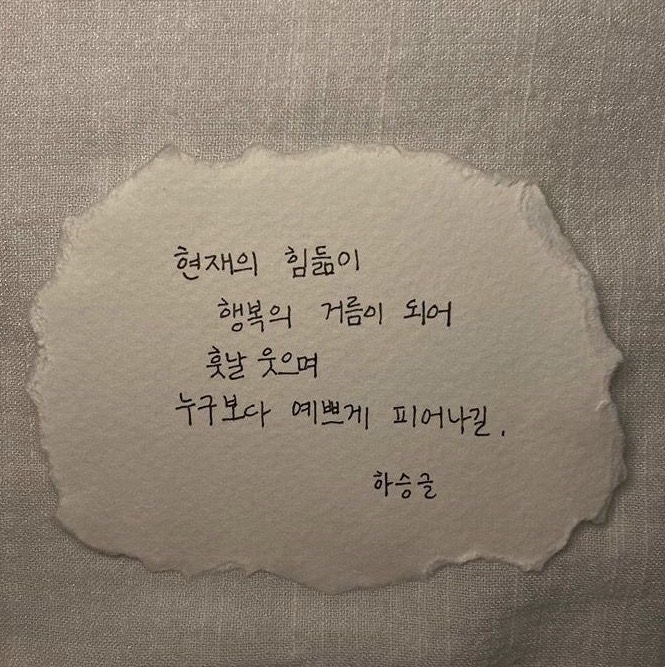 현재의 힘듦이
행복의 거름이 되어
훗날 웃으며
누구보다 예쁘게 피어나길.
하승글